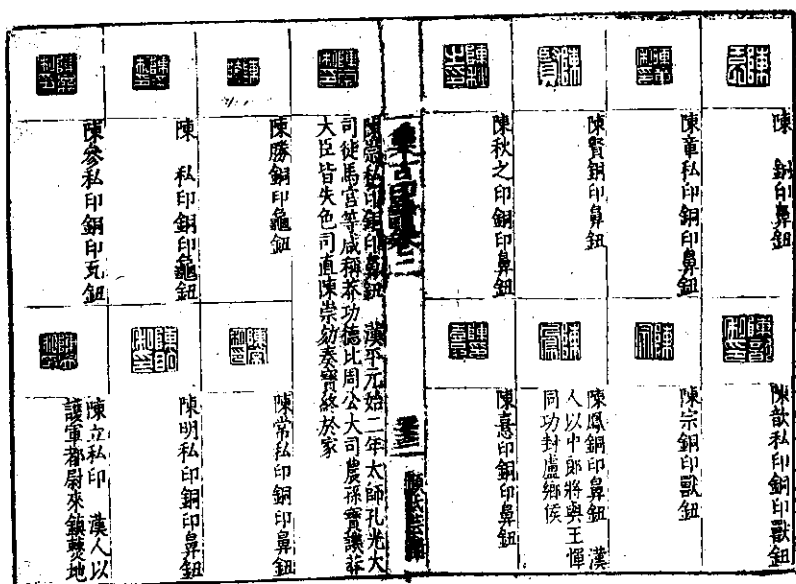 陳　銅印鼻鈕
陳章私印銅印鼻鈕
陳賢銅印鼻鈕
陳秋之印銅印鼻鈕
陳歆私印銅印獸鈕
陳宗銅印獸鈕
陳鳳銅印鼻鈕　漢
人以中郎將與王惲
同功封盧鄉侯
陳憙印銅印鼻鈕
集古印譜卷二
陳崇私印銅印鼻鈕　漢平元始二年太師孔光大
司徒馬宮等咸稱莽功德比周公大司農孫寶譏莽
大臣皆失色司直陳崇劾奏寶終於家
陳勝銅印龜鈕
陳　私印銅印龜鈕
陳參私印銅印瓦鈕
陳常私印銅印鼻鈕
陳明私印銅印鼻鈕
陳立私印　漢人以
護軍都尉來鎮爕地